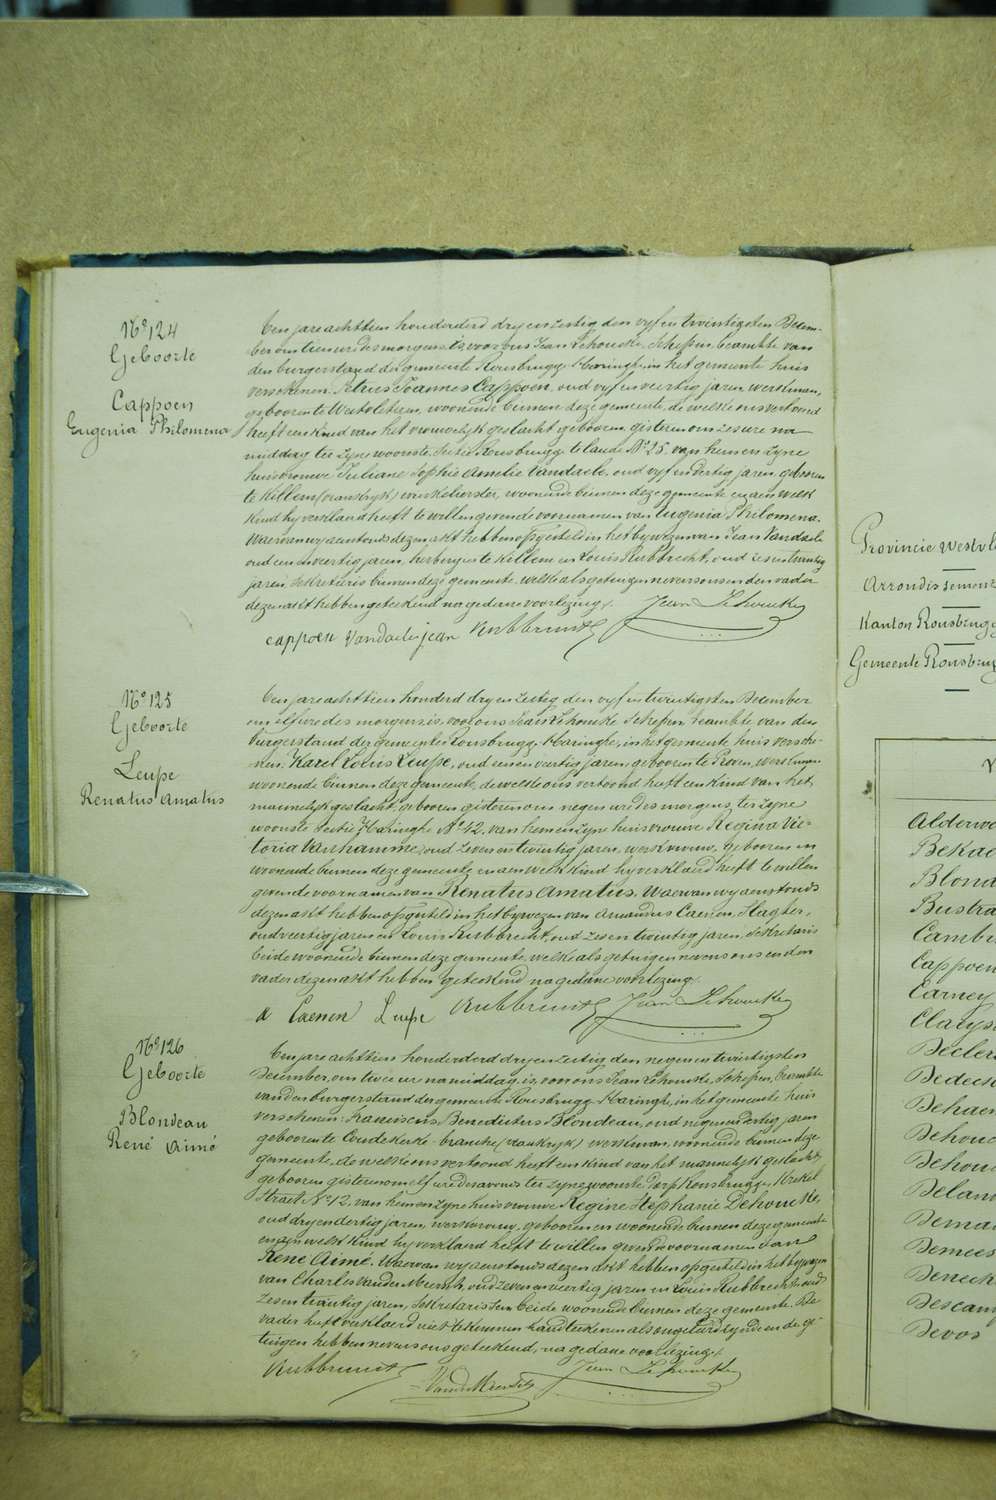 N° 124
Geboorte
Cappoen
Eugenia Philomena
Ten jare achttien honderderd dry en zestig den vyf en twintigsten Decem-
ber om tien ure des morgens is voor ons Jean Lehoucke, Schepen, beambte van
den burgerstand der gemeente Rousbrugge-Haringhe, in het gemeente huis
verschenen. Petrus Joannes Cappoen, oud vyf en veertig jaren, werkman,
geboren te Westvleteren, woonende binnen deze gemeente, de welke ons vertoond
heeft een kind van het vrouwelyk geslacht geboren gisteren om zes ure na
middag ter zyne woonste, Sectie Rousbrugg te lande N° 25, van hem en zyne
huisvrouwe Juliane Sophie Amelie Vandaele, oud vyf en dertig jaren, geboren
te Killem (vrankryk) woonende binnen deze gemeente en aen welk
kind hy verklaard heeft te willen geven de voornamen van Eugenia Philomena.
Waervan wy aenstonds dezen akt hebben opgesteld in het bywezen van Jean Vandaele
oud een en veertig jaren, herbergier te Killem en Louis Rubbrecht, oud zes en twintig
jaren, sekretaris binnen deze gemeente, welke als getuigen nevens ons en den vader
dezen akt hebben geteekend na gedane voorlezing.
Jean Lehoucke
cappoen Vandaele jean Rubbrecht
N° 125
Geboorte
Leupe
Renatus Amatus
Ten jare achttien honderd dry en zestig den vyf en twintigsten December
om elf ure des morgens is voor ons Jean Lehoucke Schepen beambte van den
burgerstand der gemeente Rousbrugge-Haringhe, in het gemeente huis versche-
nen. Karel Louis Leupe, oud een en veertig jaren, geboren te Proven, werkman
woonende binnen deze gemeente, de welke ons vertoond heeft een kind van het
mannelyk geslacht, geboren gisteren om negen ure des morgens, ter zyne
woonste Sectie Haringhe N° 42, van hem en zyne huisvrouwe Regina Vic-
toria Vanhamme, oud zeven en twintig jaren, werkvrouw, geboren en
woonende binnen deze gemeente en aen welk kind hy verklaard heeft te willen
geven de voornamen van Renatus Amatus. Waervan wy aenstonds
dezen akt hebben opgesteld in het bywezen van Amandus Caenen, Slagter,
oud veertig jaren en Louis Rubbrecht, oud zes en twintig jaren, Sekretaris
beide woonende binnen deze gemeente, welke als getuigen nevens ons en den
vader dezen akt hebben geteekend na gedane voorlezing.
A Caenen Leupe Rubbrecht Jean Lehoucke
N° 126
Geboorte
Blondeau
René Aimé
Ten jare achttien honderderd dry en zestig den negen en twintigsten
December, om twee ure namiddag, is voor ons Jean Lehoucke, Schepen, beambte
van den burgerstand der gemeente Rousbrugge-Haringhe, in het gemeente huis
verschenen: Franciscus Benedictus Blondeau, oud negen en dertig jaren
geboren te Coudekerke-branche (vrankryk) werkman, woonende binnen deze
gemeente, de welke ons vertoond heeft een kind van het mannelyk geslacht,
geboren gisteren om elf ure des avonds ter zyne woonste Dorp Rousbrugge, Krekel
Straet N° 12, van hem en zyne huisvrouwe Regine Stephanie Dehoucke,
oud dry en dertig jaren, werkvrouw, geboren en woonende binnen deze gemeente
en aen welk kind hy verklaard heeft te willen geven de voornamen van
René Aimé. Waervan wy aenstonds dezen akt hebben opgesteld in het bywezen
van Charles Vander Meersch, oud zeven en veertig jaren en Louis Rubbrecht, oud
zes en twintig jaren, Sekretaris, beide woonende binnen deze gemeente. De
vader heeft verklaerd niet te kunnen handteekenen als ongeleerd zynde en de ge-
tuigen hebben nevens ons geteekend, na gedane voorlezing.
Rubbrecht Jean Lehoucke
Provincie Westvl
Arrondissement
Kanton Rousbrugg
Gemeente Rousbrug
Alderwe
Bekae
Blond
Bustra
Cambi
Cappoen
Carney
Claeys
Decler
Dedeck
Dehaen
Dehouc
Dehouc
Delan
Demae
Demees
Deneck
Descam
Devos